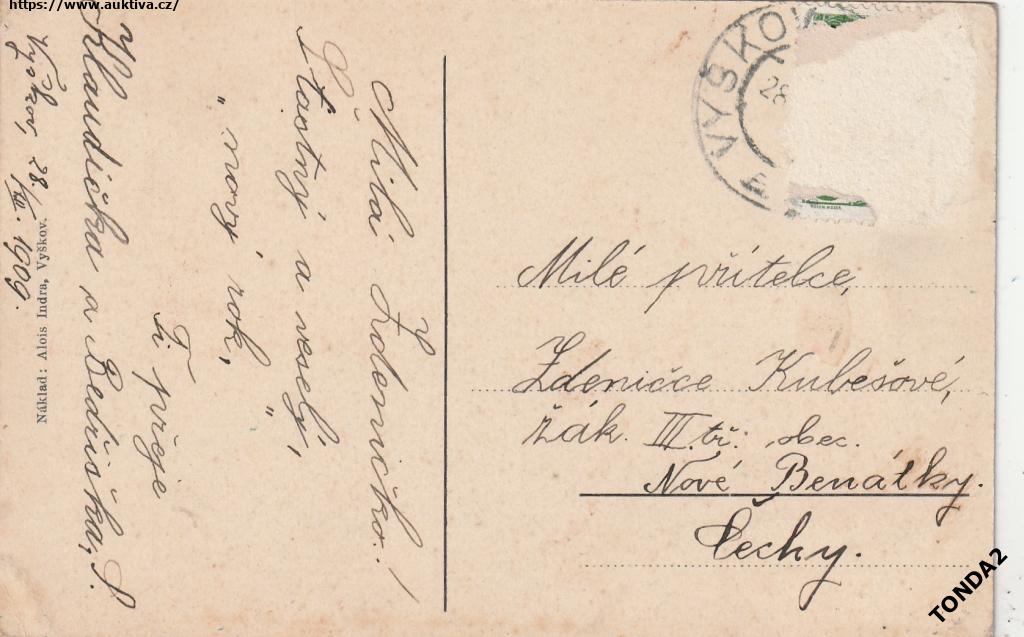 https://www.auktiva.cz/
Milá Zdeničko!
Šťastný a veselý,
"nový rok,"
Ti přeje
Klaudička a Bedřiška, S.
Vyškov, 28./XII. 1909.
Náklad: Alois Indra, Vyškov.
VYŠKOV
28
Milé přítelce,
Zdeničce Kubešové,
žák. III. tř. obec.
Nové Benátky.
Čechy.
TONDA2